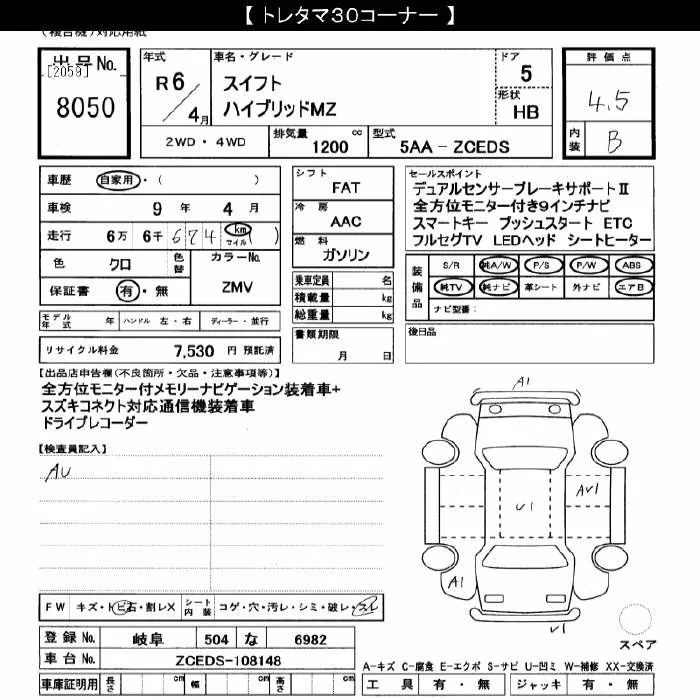 【 トレタマ30コーナー 】
(複合機)対応用紙
出品No.
[2059]
8050
年式
R 6/4月
車名・グレード
スイフト
ハイブリッドMZ
ドア
5
形状
HB
評価点
4.5
内装
B
2WD・4WD
排気量 1200 cc
型式 5AA - ZCEDS
車歴 自家用・( )
車検 9 年 4 月
走行 6万 6千 674 km マイル ( )
色 クロ 色替
カラーNo.
ZMV
保証書 有・無
シフト
FAT
冷房
AAC
燃料
ガソリン
乗車定員 名
積載量 kg
総重量 kg
書類期限
月 日
セールスポイント
デュアルセンサーブレーキサポートⅡ
全方位モニター付き9インチナビ
スマートキー プッシュスタート ETC
フルセグTV LEDヘッド シートヒーター
装備品
S/R 純A/W P/S P/W ABS
純TV 純ナビ 革シート 外ナビ エアB
ナビ型番:
後日品
モデル年式 年 ハンドル 左・右 ディーラー・並行
リサイクル料金 7,530 円 預託済
【出品店申告欄(不良箇所・欠品・注意事項等)】
全方位モニター付メモリーナビゲーション装着車+
スズキコネクト対応通信機装着車
ドライブレコーダー
【検査員記入】
AU
A1
U1
AU1
A1
U1
スペア
FW キズ・トビ石・割レX
シート内装 コゲ・穴・汚レ・シミ・破レ・スレ
登録No. 岐阜 504 な 6982
車台No. ZCEDS-108148
車庫証明用 長さ cm 幅 cm 高さ cm
A-キズ C-腐食 E-エクボ S-サビ U-凹ミ W-補修 XX-交換済
工具 有・無 ジャッキ 有・無